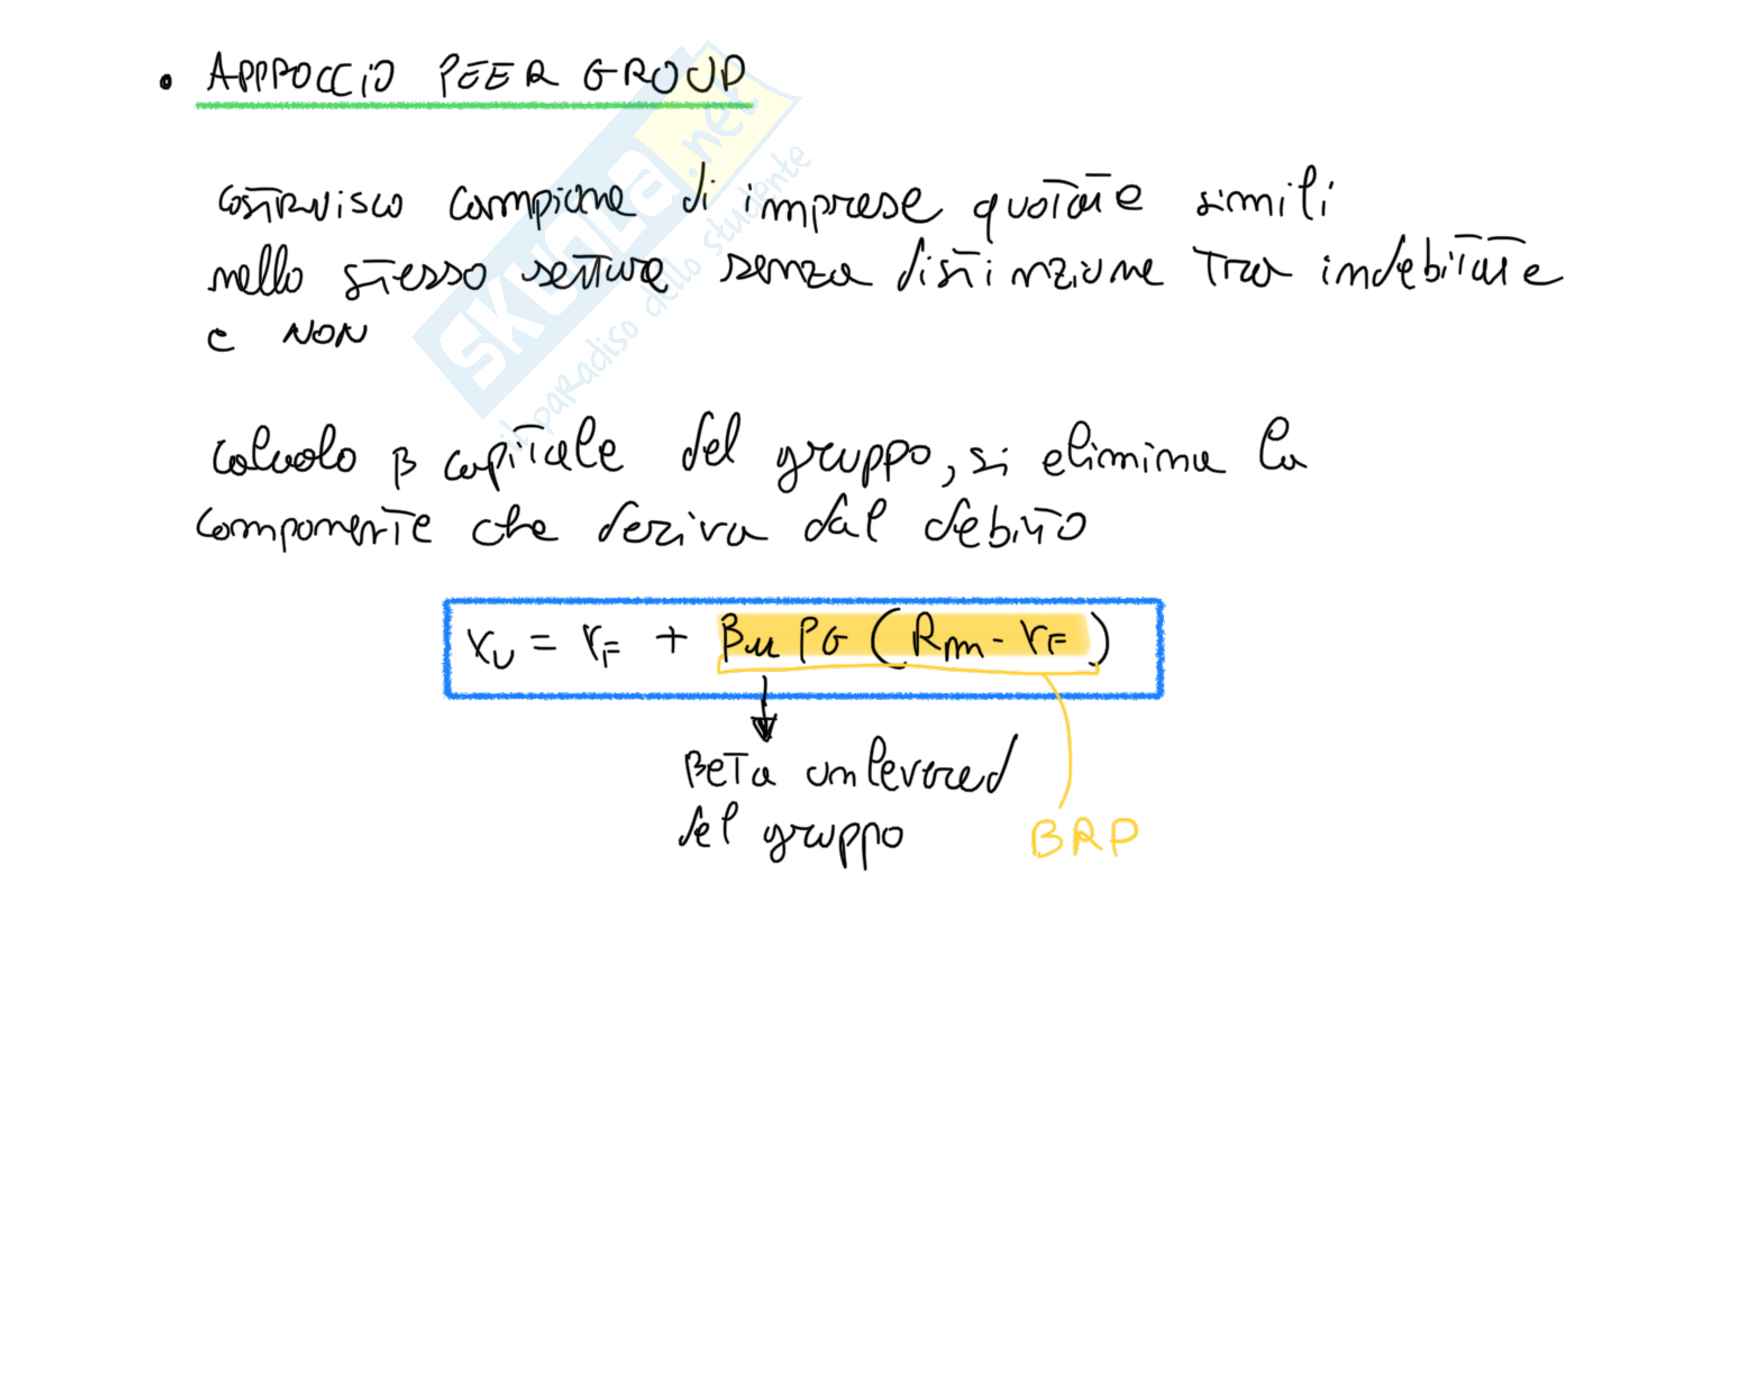 • APPROCCIO PEER GROUP
costruisco campione di imprese quotate simili
nello stesso settore senza distinzione tra indebitate
e NON
calcolo β capitale del gruppo, si elimina la
componente che deriva dal debito
rU = rF + βu PG (Rm - rF)
Beta unlevered
del gruppo
BRP
SKUOLA.net
il paradiso dello studente